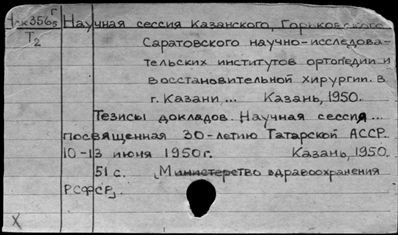 Научная сессия Казанского, Горьковского
Т2
Саратовского научно-исследова-
тельских институтов ортопедии и
восстановительной хирургии. в
г. Казани... Казань, 1950.
Тезисы докладов. Научная сессия...
посвященная 30-летию Татарской АССР.
10-13 июня 1950г. Казань, 1950.
51 с. (Министерство здравоохранения
РСФСР).
X